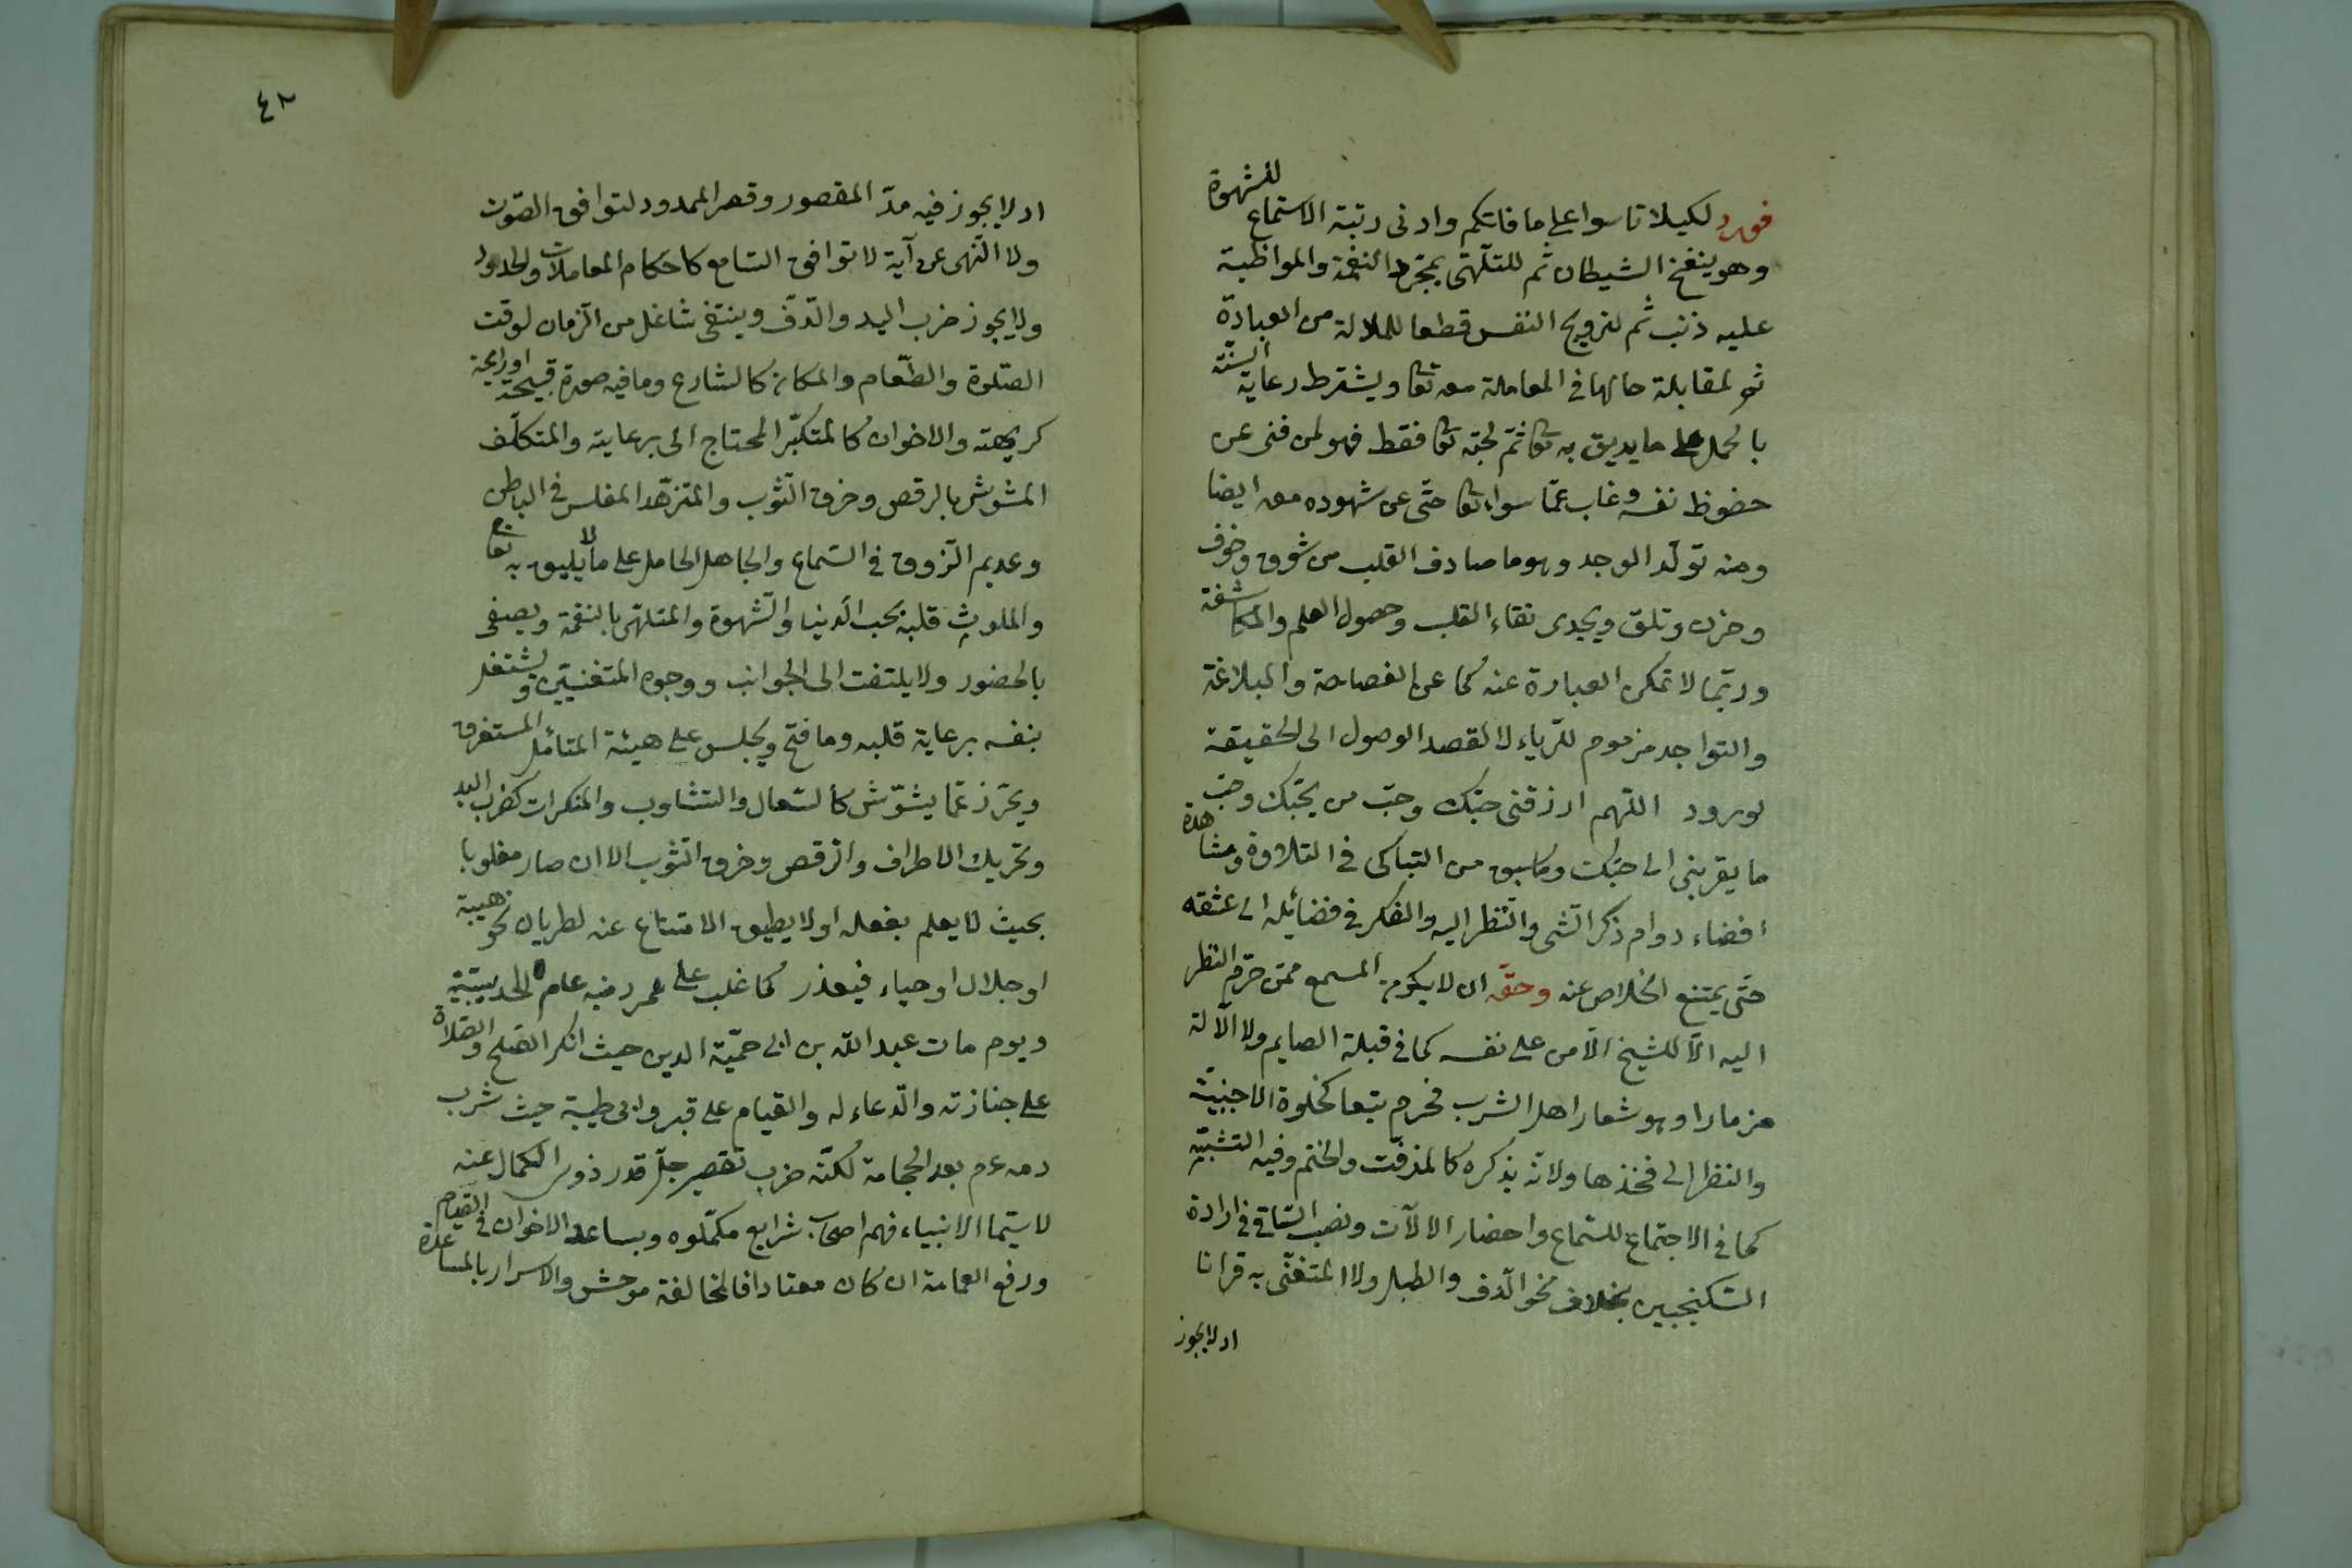 فورد لكيلا تاسوا على ما فاتكم وادنى رتبة الاستماع للشهوة
وهو ينفخ الشيطان ثم للتلهّى بمجرّد النغمة والمواظبة
عليه ذنب ثم لترويح النفس قطعا للملالة من العبادة
ثم لمقابلة حالها فى المعاملة معه تعا ويشترط رعاية السنّة
بالحمل على ما يديق به تعا ثمّ لحبّه تعا فقط فهو لمن فنى عن
حضوظ نفسه وغاب عمّا سواه تعا حتّى عن شهوده معه ايضا
ومنه تولّد الوجد وهو ما صادف القلب من شوق وخوف
وحزن وقلق ويجدى نقاء القلب وحصول العلم والمكاشفة
وربّما لا تمكن العبارة عنه كما عن الفصاحة والبلاغة
والتواجد مزموم للرّياء لا لقصد الوصول الى الحقيقة
لورود اللّهم ارزقنى حبّك وحبّ من يحبّك وحبّ
ما يقربنى الى حبّك وما سبق من التباكى فى التلاوة ومشاهدة
افضاء دوام ذكر الشّى والنّظر اليه والفكر فى فضائله الى عشقه
حتّى يمتنع الخلاص عنه وحقّه ان لا يكون المسمع ممّن حرّم النظر
اليه الّا للشيخ الآمن على نفسه كما فى قبلة الصايم ولا الآلة
مزمارا وهو شعار اهل الشرب فحرم تبعا كخلوة الاجنبيّة
والنظر الى فخذها ولانّه يذكره كالمزفّت والختم وفيه التشبّه
كما فى الاجتماع للسّماع واحضار الالآت ونصب السّاقى فى ارادة
السّكنجبين بخلاف نحو الدّف والطبل ولا المتغنّى به قرانا
اد لا يجوز
٤٢
اد لا يجوز فيه مدّ المقصور وقصر الممدود لتوافق الصّوت
ولا النّهى عن آية لا توافق السّامع كاحكام المعاملات والحدود
ولا يجوز ضرب اليد والدّف وينتفى شاغل من الزمان لوقت
الصّلوة والطّعام والمكان كالشارع وما فيه صورة قبيحة او رايحة
كريهته والاخوان كالمتكبّر المحتاج الى رعايته والمتكلّف
المشوش بالرقص وخرق الثّوب والمتزهّد المفلس فى الباطن
وعديم الذّوق فى السّماع والجاهل الحامل على ما لا يليق به تعا
والملوث قلبه بحب الدّنيا والشّهوة والمتلهّى بالنغمة ويصغى
بالحضور ولا يلتفت الى الجوانب ووجوه المتغنّيين ويشتغل
بنفسه برعاية قلبه وما فتح ويجلس على هيئة المتائمّل المستغرق
ويحترز عمّا يشوّش كالسّعال والتثاوب والمنكرات كضرب اليد
وتحريك الاطراف والرّقص وخرق الثوب الا ان صار مغلوبا
بحيث لا يعلم بفعله او لا يطيق الامتناع عنه لطريان نحو هيبة
او جلال او حياء فيعذر كما غلب على عمر رضه عام الحديبيّة
ويوم مات عبد اللّه بن ابى حميّة الدين حيث انكر الصّلح والصّلاة
على جنازته والدّعاء له والقيام على قبر وابى طيبة حيث شرب
دمه عم بعد الحجامة لكنّه ضرب تقصير جلّ قدر ذوى الكمال عنه
لا سيّما الانبياء فهم اصحاب شرايع مكمّلوه ويساعد الاخوان فى القيام
ورفع العمامة ان كان معتادا فالمخالفة موحش والاسرار بالمساعدة